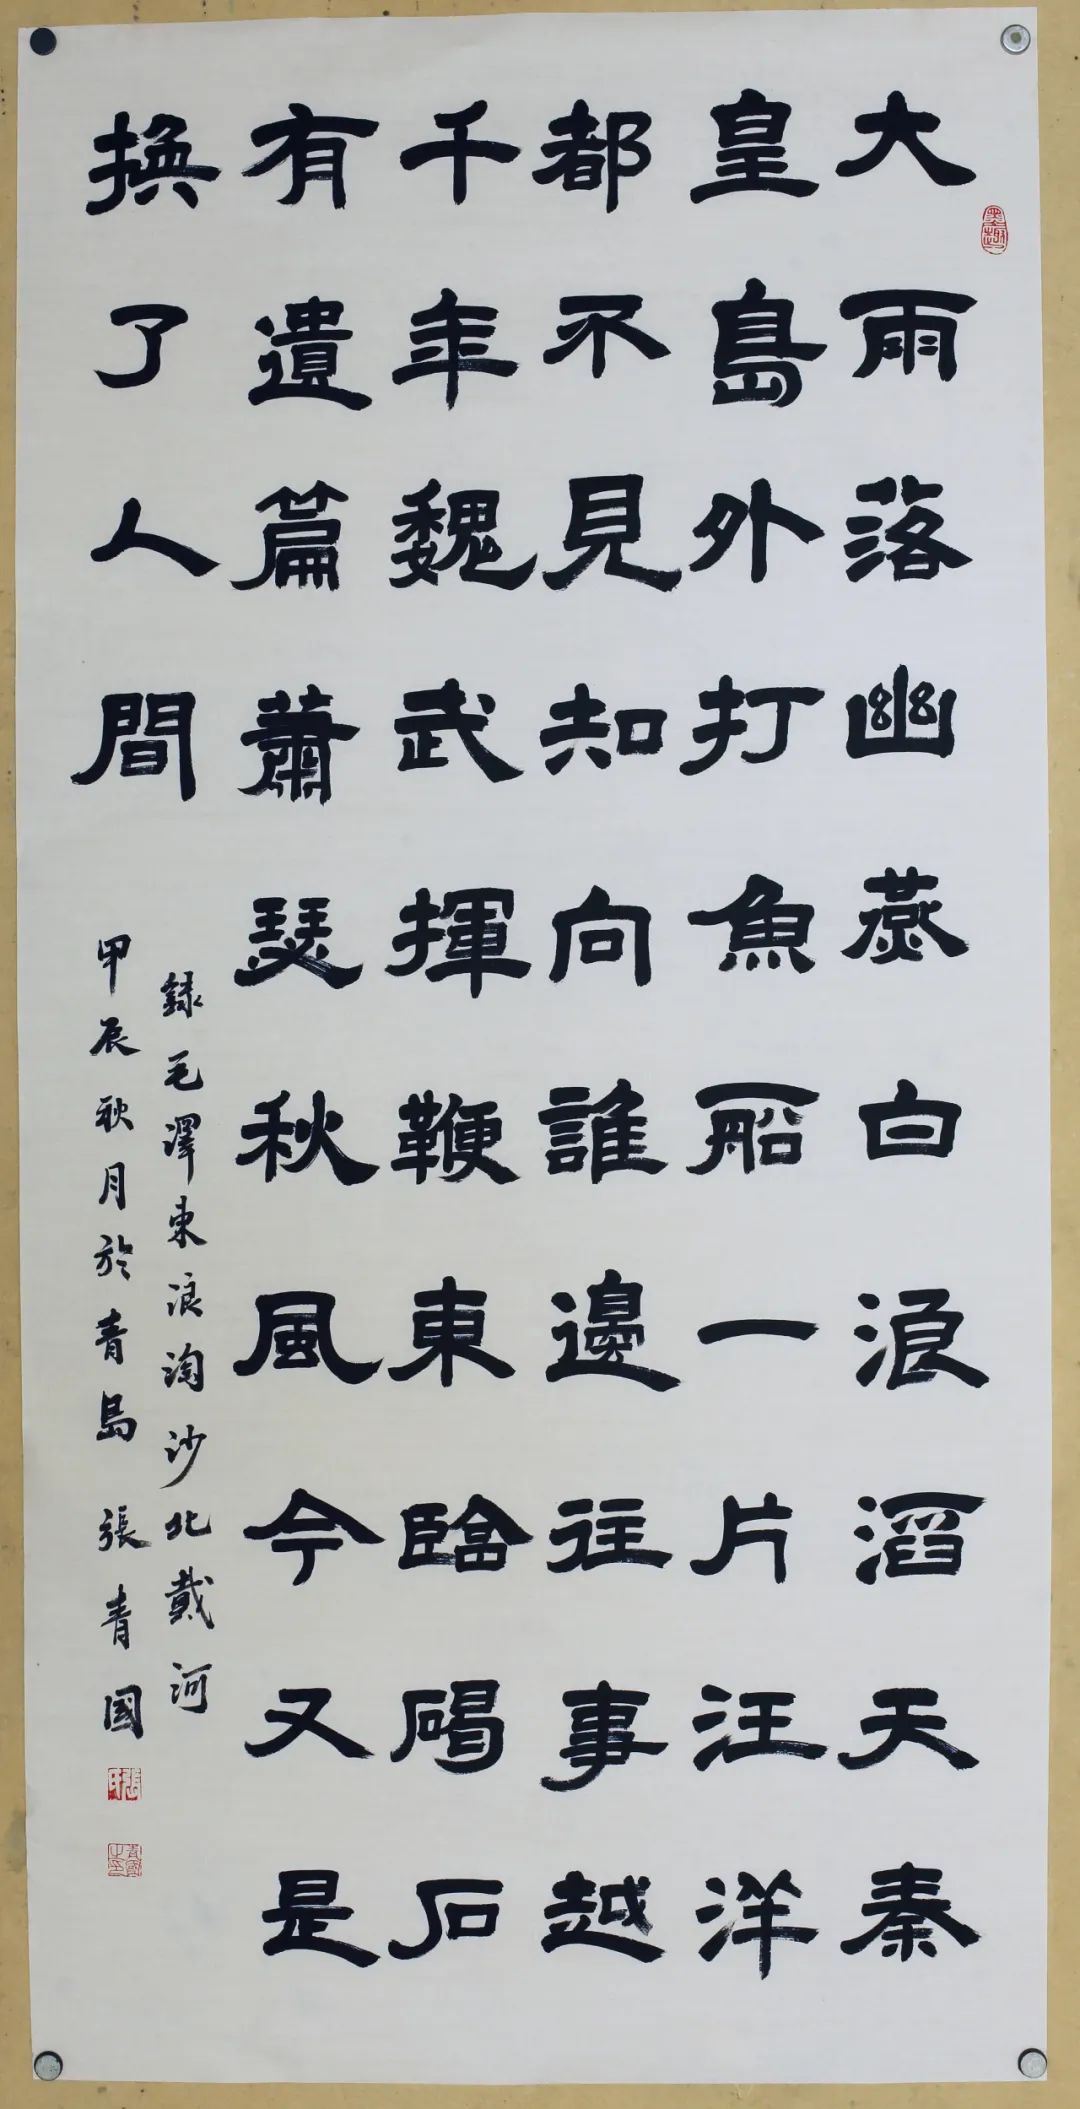 大雨落幽燕白浪滔天秦
皇島外打魚船一片汪洋
都不見知向誰邊往事越
千年魏武揮鞭東臨碣石
有遺篇蕭瑟秋風今又是
換了人間
錄毛澤東浪淘沙北戴河
甲辰秋月於青島 張青國
墨趣
張氏
青國之印